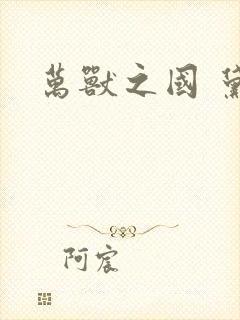 萬獸之國
阿宸